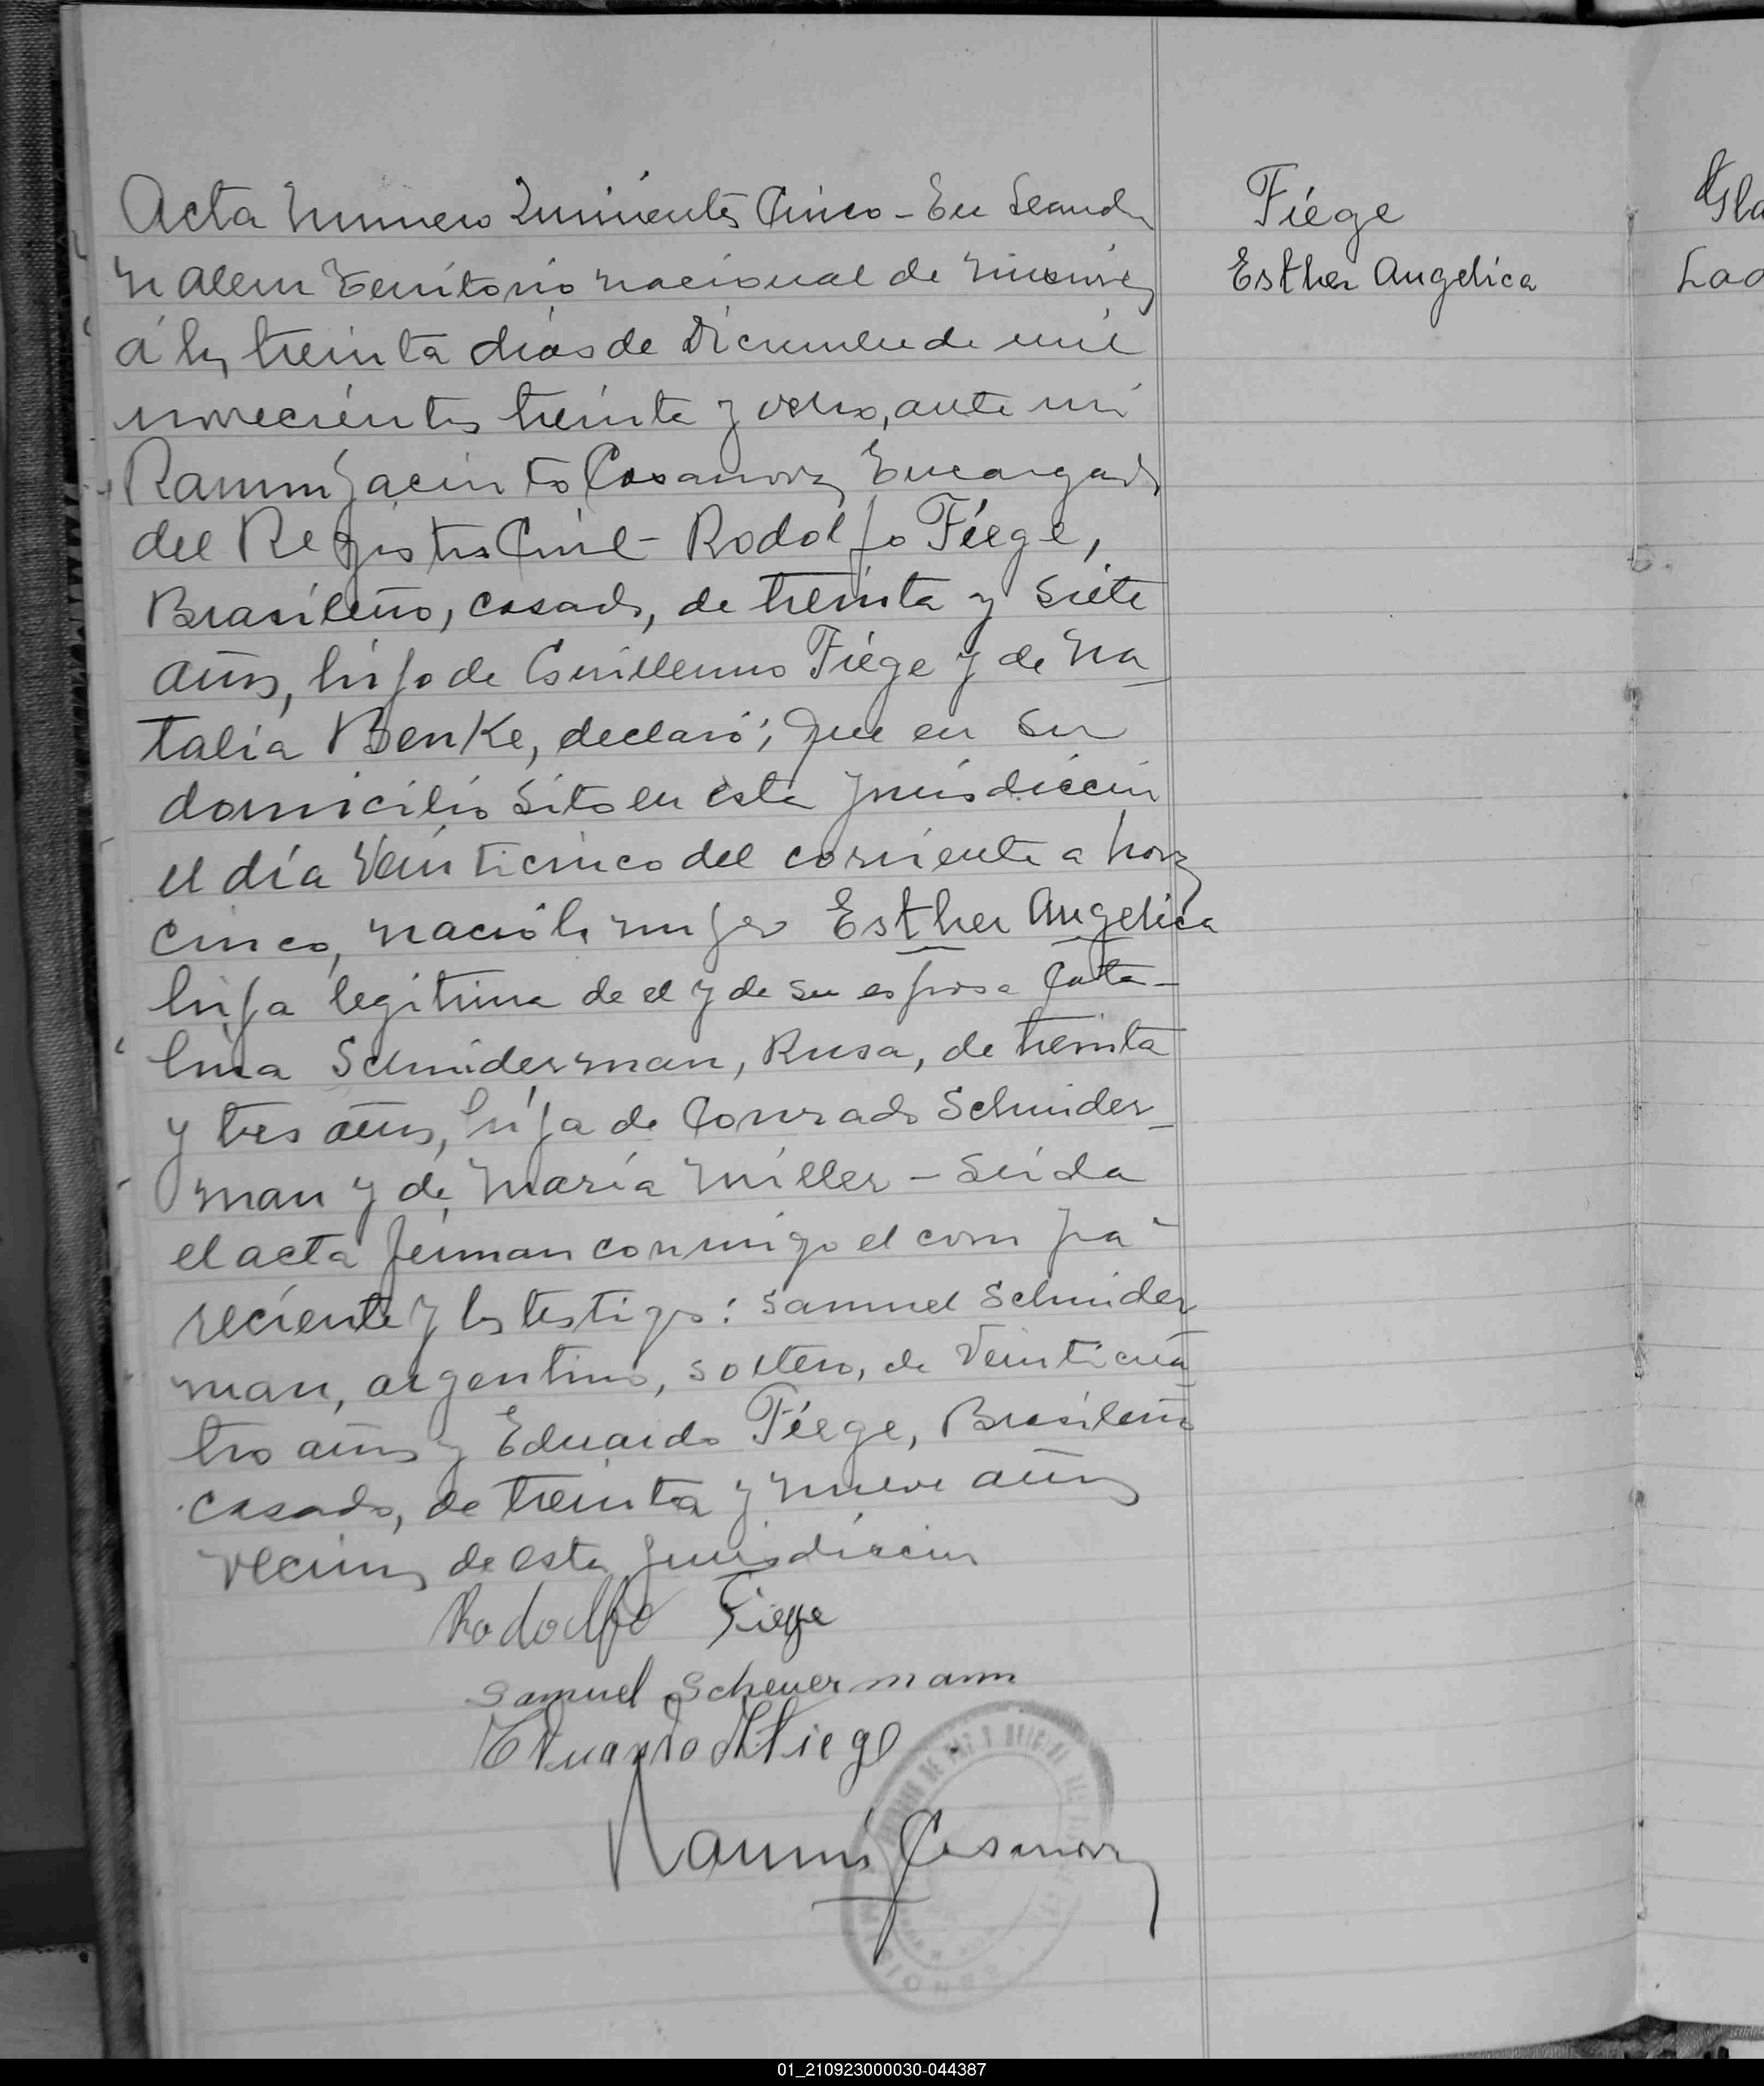 Acta Numero Quinientos Cinco - En Leandro
N Alem Territorio nacional de Misiones
á los treinta dias de Diciembre de mil
novecientos treinta y ocho, ante mi
Ramon Jacinto Casanova Encargado
del Registro Civil - Rodolfo Fiege,
Brasileño, casado, de treinta y siete
años, hijo de Guillermo Fiege y de Na
talia Benke, declaró; Que en su
domicilio sito en esta jurisdiccion
el día veinticinco del corriente a hora
cinco, nació la mujer Esther Angelica
hija legitima de el y de su esposa Cata-
lina Schniderman, Rusa, de treinta
y tres años, hija de Conrado Schnider-
man y de Maria Miller - Leida
el acta firman conmigo el compa-
reciente y los testigos: Samuel Schnider
man, argentino, soltero, de veinticua
tro años y Eduardo Fiege, Brasileño
casado, de treinta y nueve años
vecinos de esta jurisdiccion
Rodolfo Fiege
Samuel Scheuermann
Eduardo Fiege
Ramón J Casanova
Fiege
Esther Angelica
01_210923000030-044387